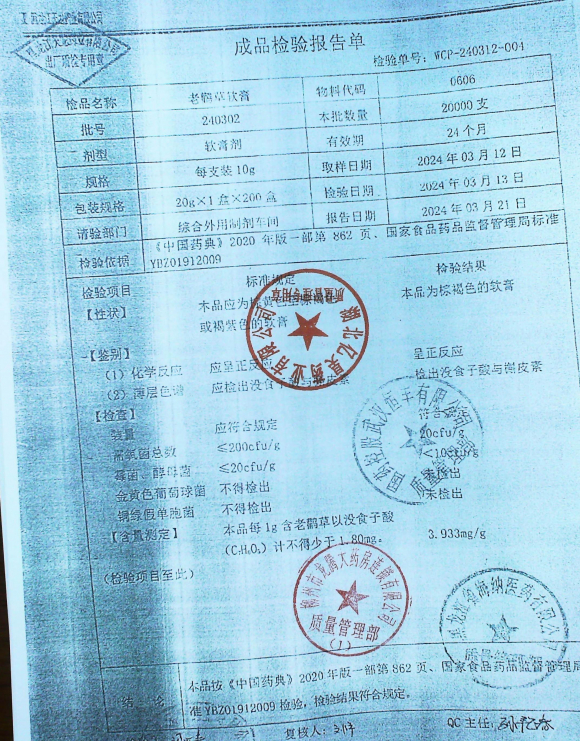 成品检验报告单
检验单号：WCP-240312-004
检品名称 老鹳草软膏 物料代码 0606
批号 240302 本批数量 20000 支
剂型 软膏剂 有效期 24 个月
规格 每支装 10g 取样日期 2024 年 03 月 12 日
包装规格 20g×1 盒×200 盒 检验日期 2024 年 03 月 13 日
请验部门 综合外用制剂车间 报告日期 2024 年 03 月 21 日
检验依据 《中国药典》2020 年版一部第 862 页、国家食品药品监督管理局标准
YBZ01912009
检验项目 标准规定 检验结果
【性状】 本品应为棕黄色至 本品为棕褐色的软膏
或褐紫色的软膏
【鉴别】
（1）化学反应 应呈正反应 呈正反应
（2）薄层色谱 应检出没食子酸与槲皮素 检出没食子酸与槲皮素
【检查】
装量 应符合规定 符合规定
需氧菌总数 ≤200cfu/g 20cfu/g
霉菌、酵母菌 ≤20cfu/g <10cfu/g
金黄色葡萄球菌 不得检出 未检出
铜绿假单胞菌 不得检出 未检出
【含量测定】 本品每 1g 含老鹳草以没食子酸
（C₇H₆O₅）计不得少于 1.80mg。 3.933mg/g
（检验项目至此）
结论 本品按《中国药典》2020 年版一部第 862 页、国家食品药品监督管理局
准 YBZ01912009 检验，检验结果符合规定。
复核人： QC 主任：
出厂检验专用章
湖北亿昊药业有限公司
质量管理专用章
国药控股武汉恒丰有限公司
柳州市龙腾大药房连锁有限公司
质量管理部
（1）